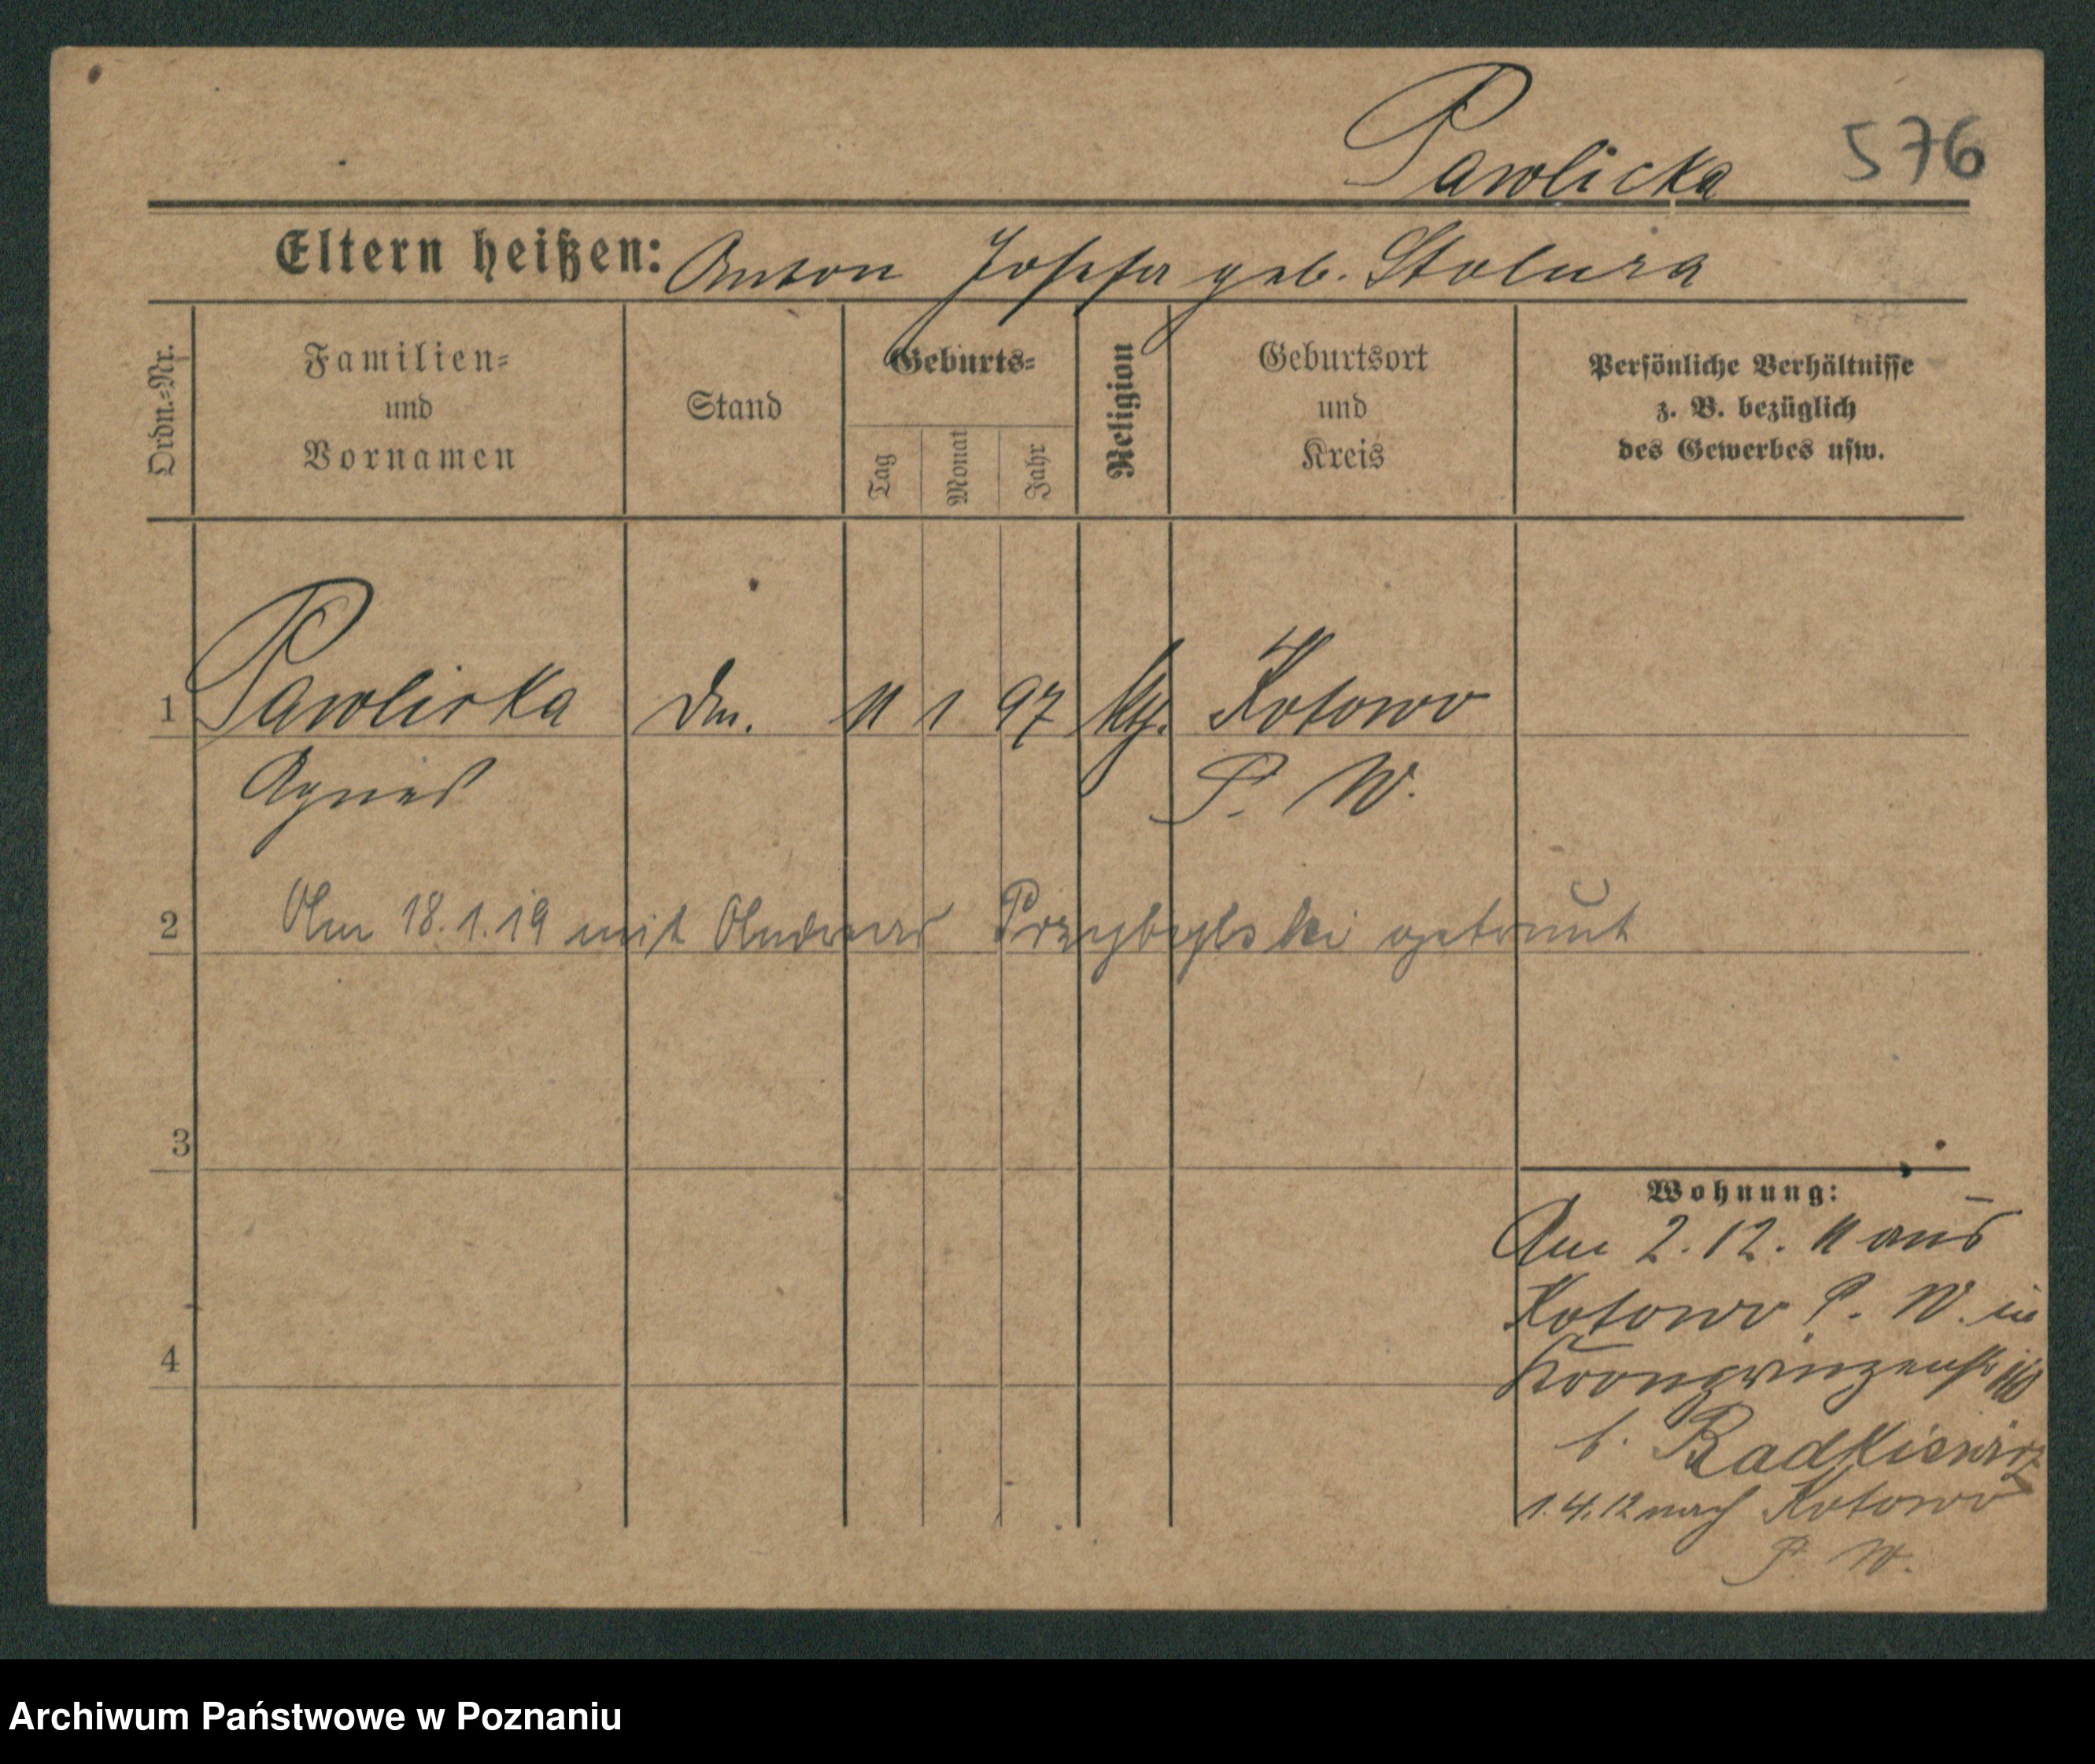 Pawlicka 576
Eltern heißen: Anton Josefa geb. Stolura
Ordn.-Nr.
Familien-
und
Vornamen
Stand
Geburts-
Tag
Monat
Jahr
Religion
Geburtsort
und
Kreis
Persönliche Verhältnisse
z. B. bezüglich
des Gewerbes usw.
1 Pawlicka 11 1 97 kth. Kotowo
Agnes P. W.
2 Am 18.1.19 mit Andreas Przybylski getraut
3
4
Wohnung:
Am 2. 12. 11 aus
Kotowo P. W. in
Kronprinzenstr
b. Radkiewicz
1.4.12 nach Kotowo
P. W.
Archiwum Państwowe w Poznaniu